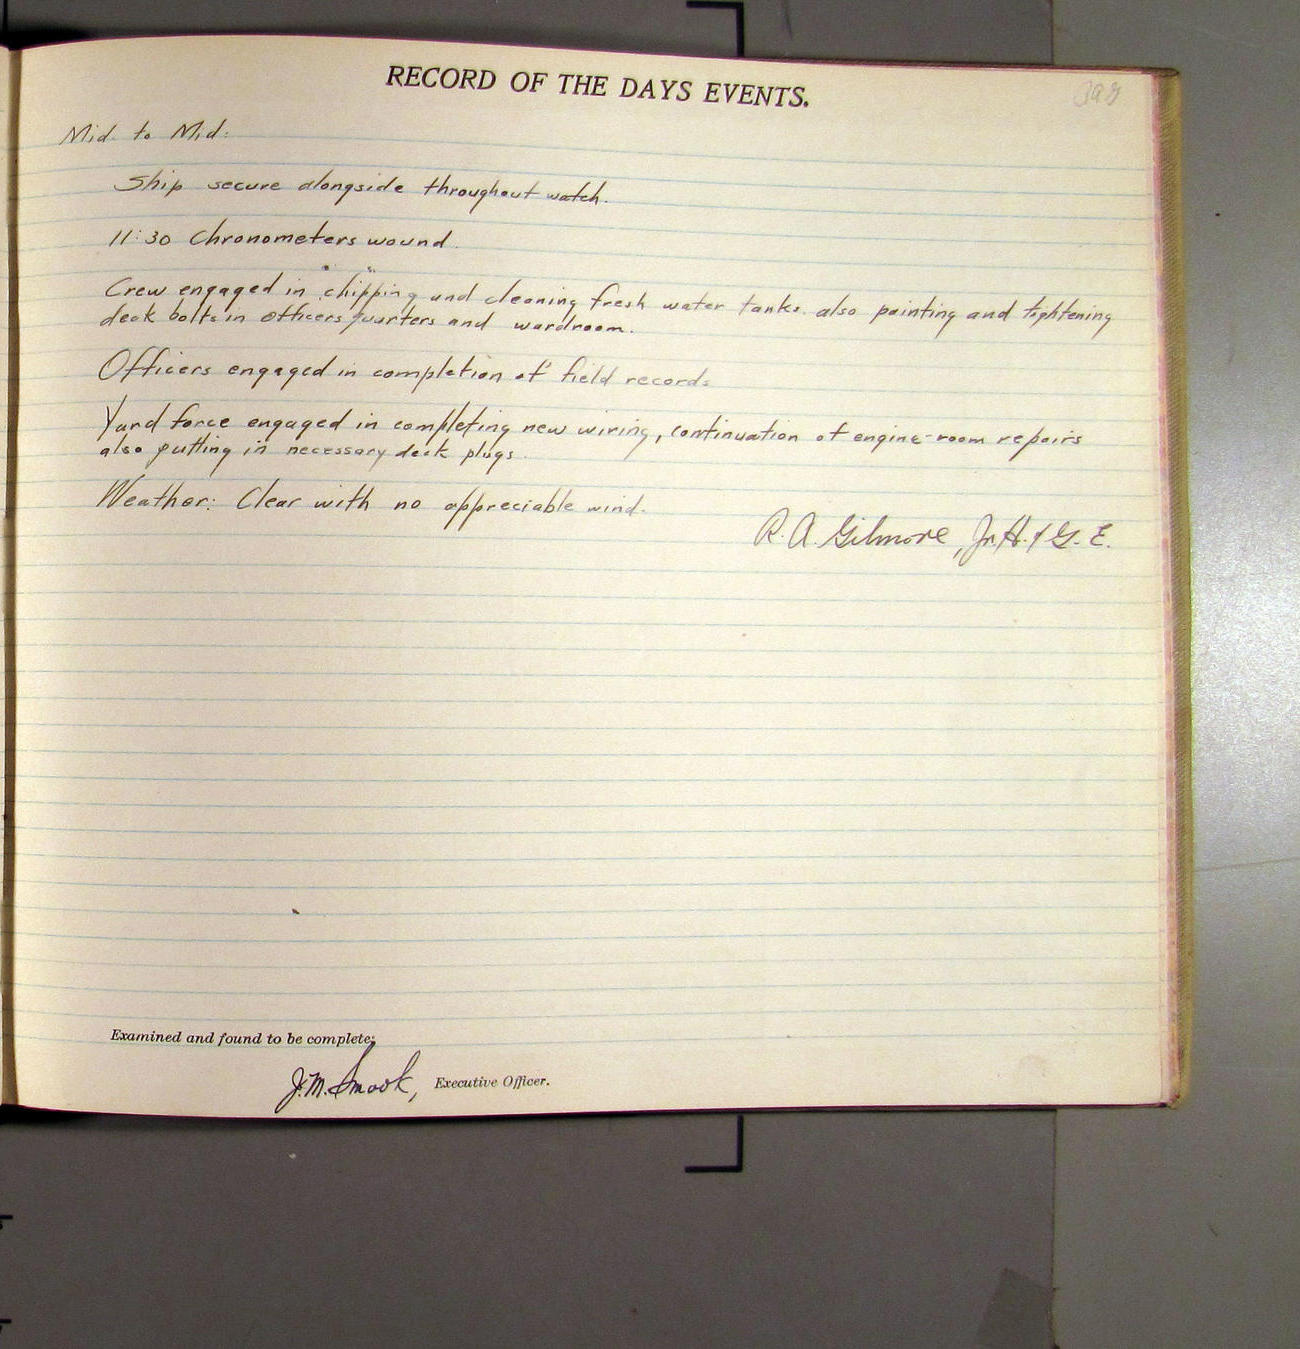 RECORD OF THE DAYS EVENTS.
Mid. to Mid:
Ship secure alongside throughout watch.
11:30 Chronometers wound.
Crew engaged in "chipping" and cleaning fresh water tanks. also painting and tightening
deck bolts in officers quarters and wardroom.
Officers engaged in completion of field records
Yard force engaged in completing new wiring, continuation of engine-room repairs
also putting in necessary deck plugs.
Weather: Clear with no appreciable wind.
R. A. Gilmore, Jr. H. & G. E.
Examined and found to be complete;
J. M. Smook, Executive Officer.